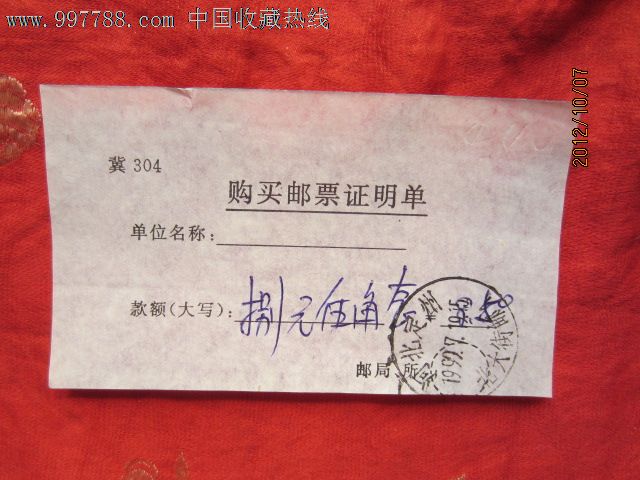 www.997788.com 中国收藏热线
2012/10/07
冀 304
购买邮票证明单
单位名称：
款额(大写)：捌元伍角
8.50
邮局 所
河北定州
1992.7.
大街